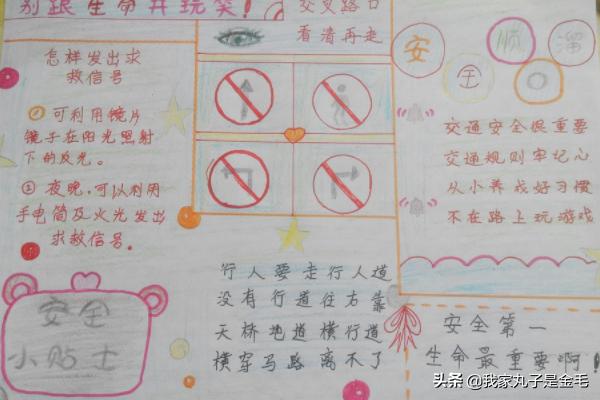 别跟生命开玩笑!
怎样发出求
救信号
①可利用镜片
镜子在阳光照射
下的反光。
②夜晚,可以利用
手电筒及火光发出
求救信号。
安全
小贴士
交叉路口
看清再走
行人要走行人道
没有行道往右靠
天桥地道横行道
横穿马路离不了
安全顺溜
交通安全很重要
交通规则牢记心
从小养成好习惯
不在路上玩游戏
安全第一
生命最重要啊!
头条 @我家丸子是金毛